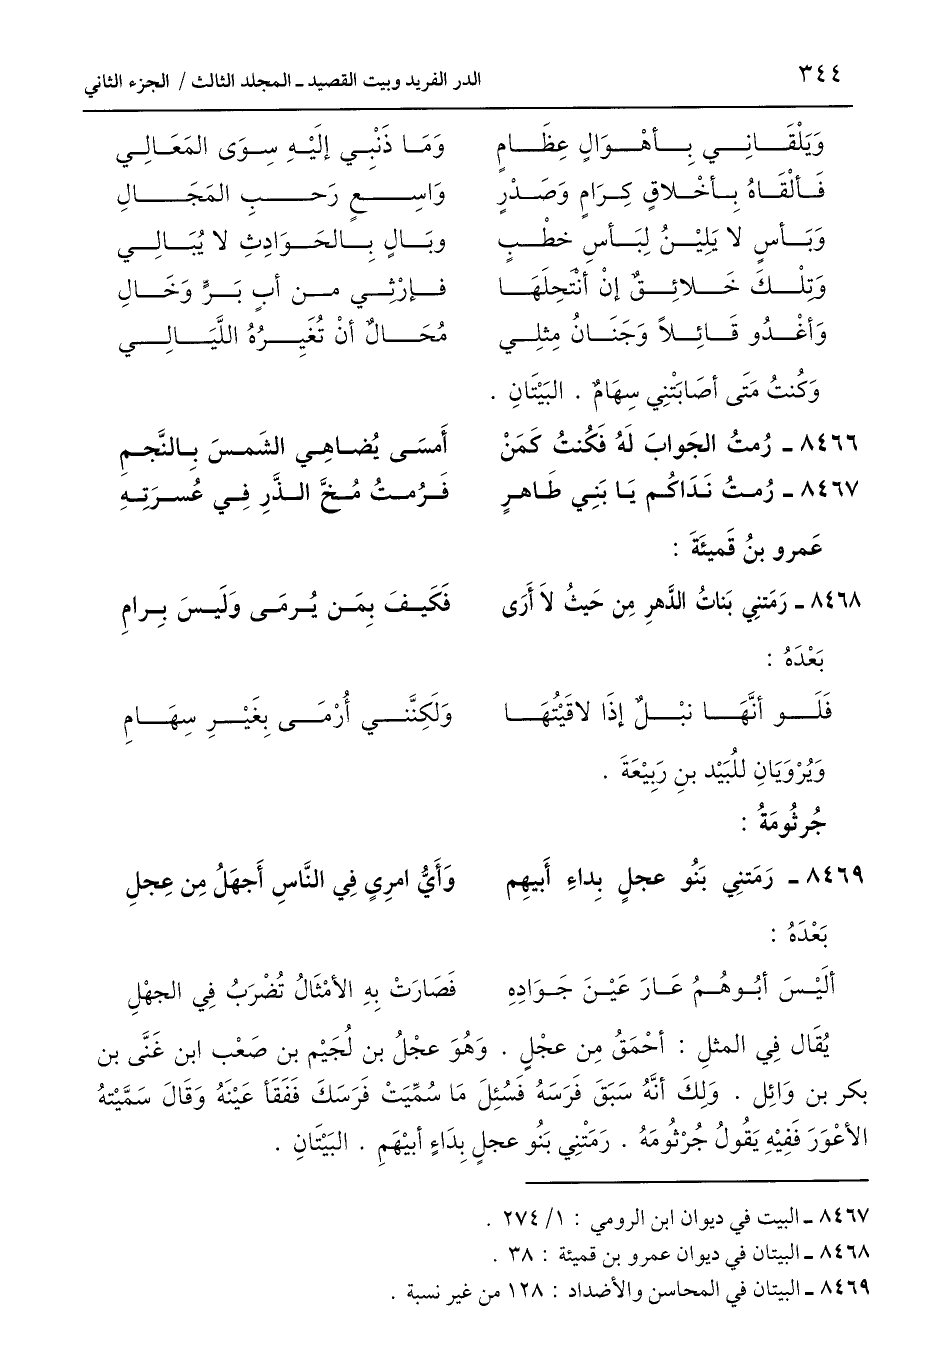 ٣٤٤
الدر الفريد وبيت القصيد ـ المجلد الثالث / الجزء الثاني
وَيَلْقَـــانِـــي بِـــأهْـــوَالٍ عِظَـــامٍ وَمَـا ذَنْبِـي إلَيْـهِ سِـوَى المَعَـالِـي
فَـألْقَـاهُ بِـأخْـلاقٍ كِـرَامٍ وَصَـدْرٍ وَاسِـــعٍ رَحِـــبِ المَجَـــالِ
وَبَـأسٍ لا يَلِيْـنُ لِبَـأسِ خطْـبٍ وبَـالٍ بِـالحَـوَادِثِ لا يُبَـالِـي
وَتِلْـكَ خَـلائِـقٌ إنْ أنْتَحِلْهَـا فَـإرْثِـي مـن أبٍ بَـرٍّ وَخَـالِ
وَأغْـدُو قَـائِـلاً وَجَنَـانُ مِثلِـي مُحَـالٌ أنْ تُغَيـرُهُ اللَّيَـالِـي
وَكُنتُ مَتَى أصَابَتْنِي سِهَامٌ . البَيْتَانِ .
٨٤٦٦ ـ رُمتُ الجَوابَ لَهُ فَكُنتُ كَمَنْ أَمسَـى يُضَـاهِـي الشَّمـسَ بِـالنَّجـمِ
٨٤٦٧ ـ رُمـتُ نَـدَاكُـم يَـا بَنِي طَـاهـرٍ فَـرُمـتُ مُـخَّ الـذَّرِ فِـي عُسـرَتِـهِ
عَمرو بنُ قَميئَةَ :
٨٤٦٨ ـ رَمَتنِي بَنَاتُ الدَّهرِ مِن حَيثُ لاَ أَرَى فَكَيـفَ بِمَـن يُـرمَـى وَلَيـسَ بِـرامِ
بَعْدَهُ :
فَلَـو أنَّهَـا نبْـلٌ إذَا لاقَيْتُهَـا وَلَكِنَّنـي أُرْمَـى بِغَيْـرِ سِهَـامِ
وَيُرْوَيَانِ للُبَيْد بن رَبِيْعَةَ .
جُرثُومَةُ :
٨٤٦٩ ـ رَمَتنِي بَنُو عجلٍ بِداءِ أَبيهِم وَأَيُّ امرِي فِي النَّاسِ أَجهَلُ مِن عِجلِ
بَعْدَهُ :
ألَيْـسَ أبُـوهُـمُ عَـارَ عَيْـنَ جَـوَادِهِ فَصَارَتْ بِهِ الأمْثَالُ تُضْرَبُ فِي الجهْلِ
يُقَال فِي المثلِ : أحْمَقُ مِن عجْلٍ . وَهُوَ عجْلُ بن لُجَيْم بن صَعْب ابن غَنَّى بن
بكر بن وَائِل . وَلِكَ أنَّهُ سَبَقَ فَرَسَهُ فَسُئِلَ مَا سُمِّيَتْ فَرَسكَ فَفَقَأ عَيْنَهُ وَقَالَ سَمَّيْتهُ
الأعْوَرَ فَفِيْهِ يَقُولُ جُرْثُومَةُ . رَمَتْنِي بَنُو عجلٍ بِدَاءِ أبيْهَمِ . البَيْتَانِ .
٨٤٦٧ ـ البيت في ديوان ابن الرومي : ١/ ٢٧٤ .
٨٤٦٨ ـ البيتان في ديوان عمرو بن قميئة : ٣٨ .
٨٤٦٩ ـ البيتان في المحاسن والأضداد : ١٢٨ من غير نسبة .